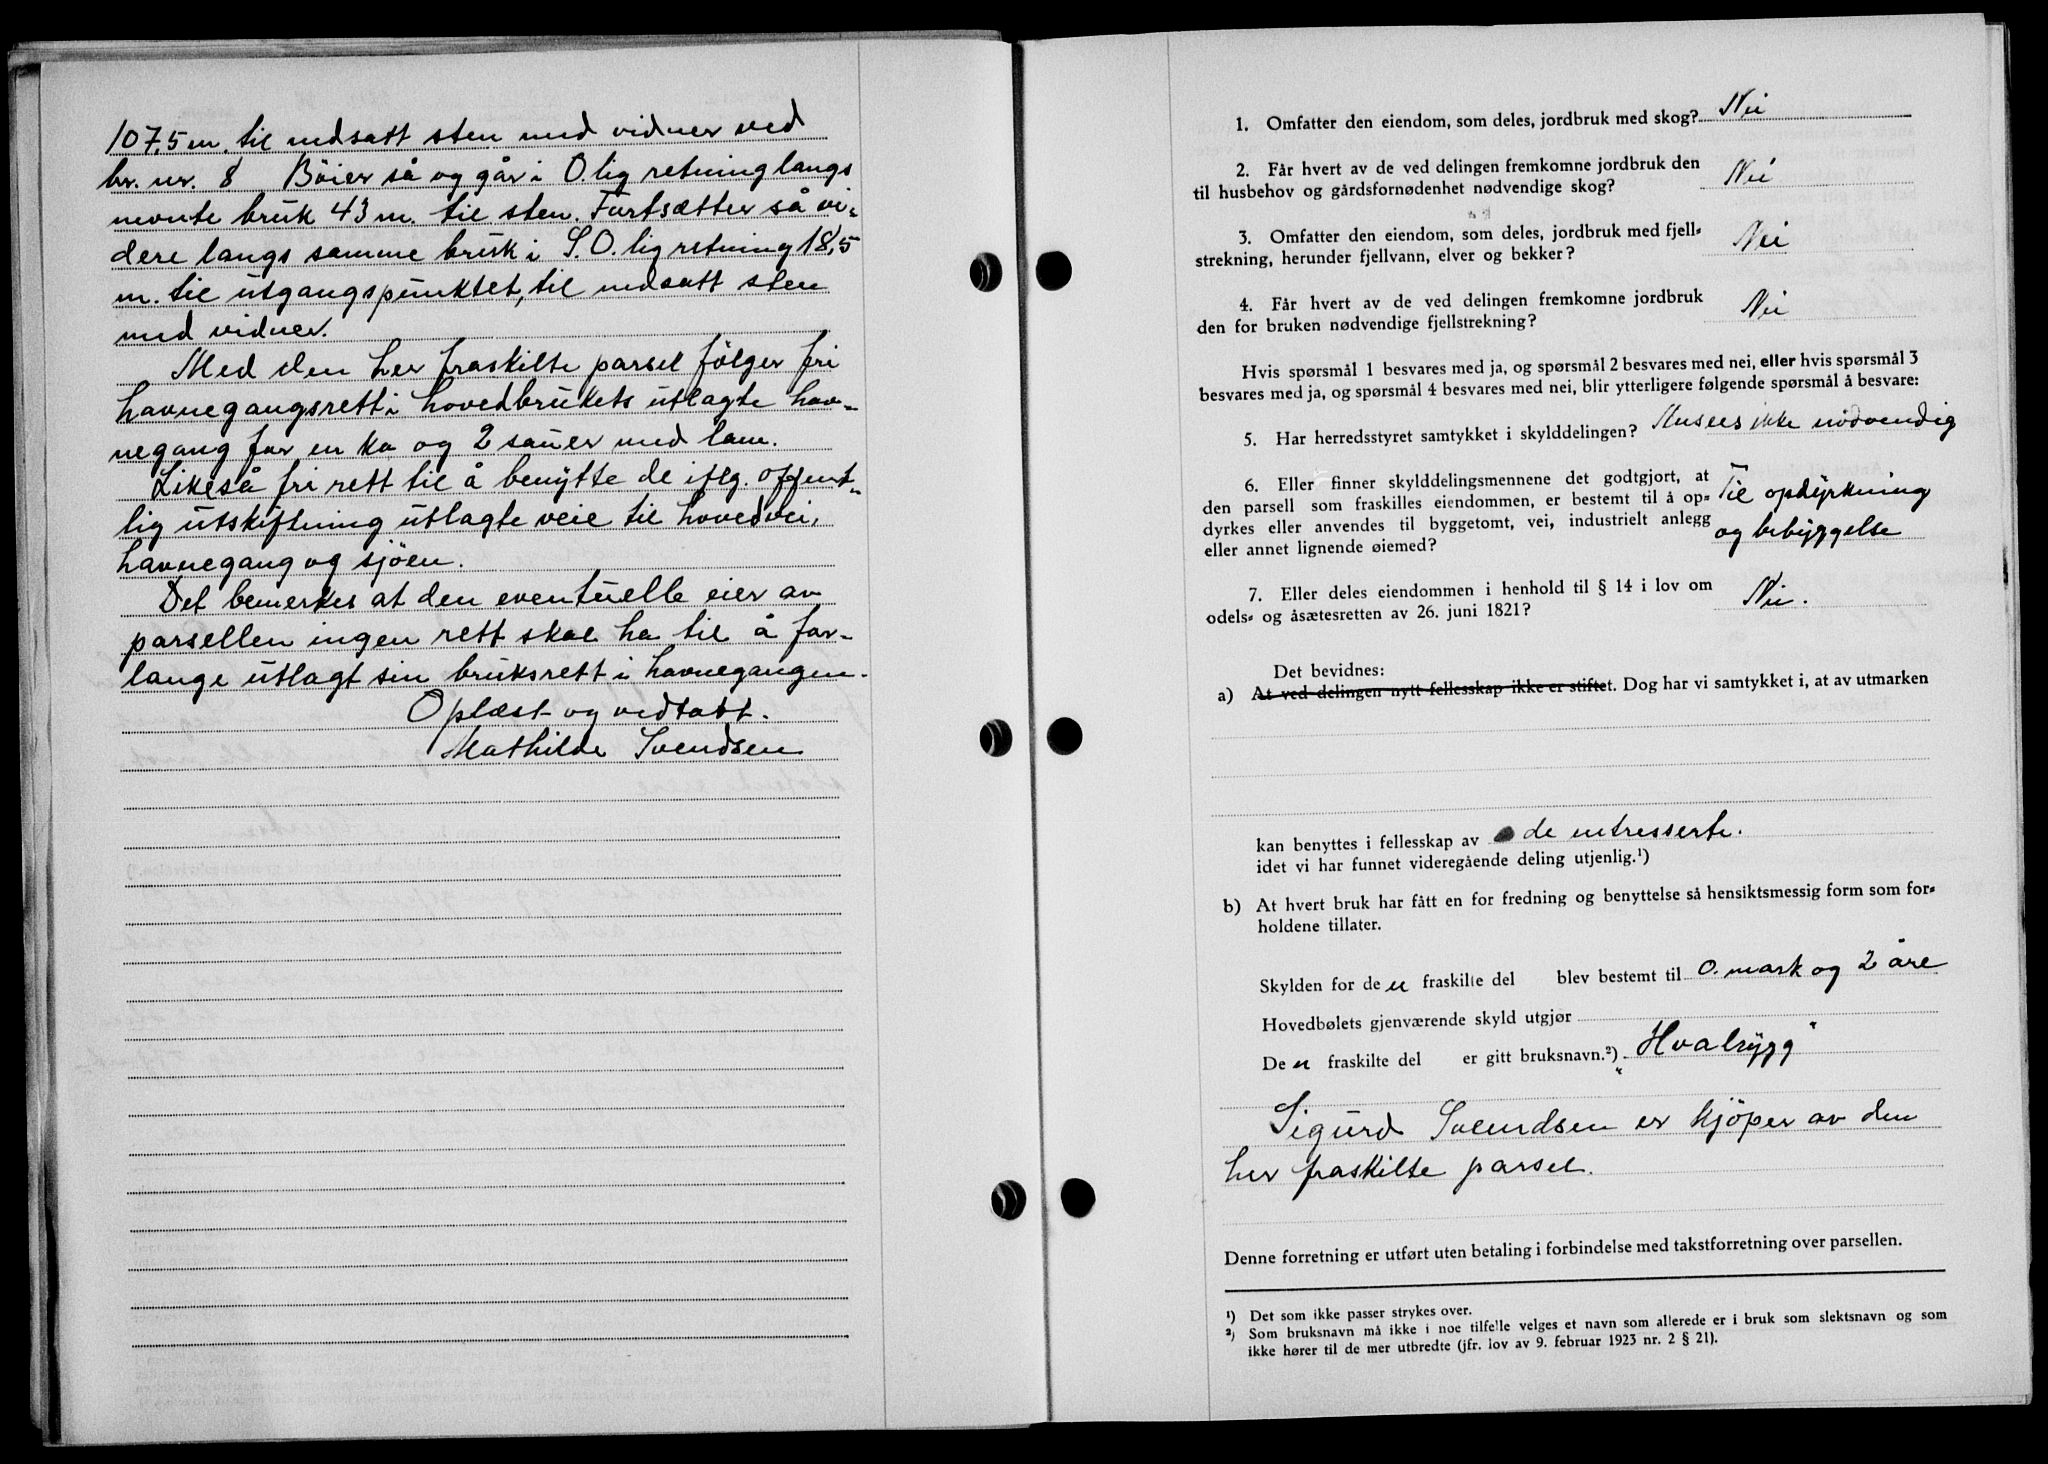 107,5 m. til nedsatt sten med vidner ved
br. nr. 8 Böier så og går i O.lig retning langs
nevnte bruk 43 m. til sten. Fortsætter så vi-
dere langs samme bruk i S.O.lig retning 18,5
m. til utgangspunktet, til nedsatt sten
med vidner.
Med den her fraskilte parsel følger fri
havnegangsrett i hovedbrukets utlagte hav-
negang for en ku og 2 sauer med lam.
Likeså fri rett til å benytte de iflg. offent-
lig utskiftning utlagte veie til hovedvei,
havnegang og sjöen.
Det bemerkes at den eventuelle eier av
parsellen ingen rett skal ha til å for-
lange utlagt sin bruksrett i havnegangen.
Oplæst og vedtatt.
Mathilde Svendsen
1. Omfatter den eiendom, som deles, jordbruk med skog? Nei
2. Får hvert av de ved delingen fremkomne jordbruk den
til husbehov og gårdsfornødenhet nødvendige skog? Nei
3. Omfatter den eiendom, som deles, jordbruk med fjell-
strekning, herunder fjellvann, elver og bekker? Nei
4. Får hvert av de ved delingen fremkomne jordbruk
den for bruken nødvendige fjellstrekning? Nei
Hvis spørsmål 1 besvares med ja, og spørsmål 2 besvares med nei, eller hvis spørsmål 3
besvares med ja, og spørsmål 4 besvares med nei, blir ytterligere følgende spørsmål å besvare:
5. Har herredsstyret samtykket i skylddelingen? Ansees ikke nødvendig
6. Eller finner skylddelingsmennene det godtgjort, at
den parsell som fraskilles eiendommen, er bestemt til å op- Til opdyrkning
dyrkes eller anvendes til byggetomt, vei, industrielt anlegg
eller annet lignende øiemed? og bebyggelse
7. Eller deles eiendommen i henhold til § 14 i lov om
odels- og åsætesretten av 26. juni 1821? Nei.
Det bevidnes:
a) At ved delingen nytt fellesskap ikke er stiftet. Dog har vi samtykket i, at av utmarken
kan benyttes i fellesskap av de intresserte.
idet vi har funnet videregående deling utjenlig.¹)
b) At hvert bruk har fått en for fredning og benyttelse så hensiktsmessig form som for-
holdene tillater.
Skylden for de n fraskilte del blev bestemt til 0. mark og 2 øre
Hovedbølets gjenværende skyld utgjør
De n fraskilte del er gitt bruksnavn.²) „Hvalrygg"
Sigurd Svendsen er kjøper av den
her fraskilte parsel.
Denne forretning er utført uten betaling i forbindelse med takstforretning over parsellen.
¹) Det som ikke passer strykes over.
²) Som bruksnavn må ikke i noe tilfelle velges et navn som allerede er i bruk som slektsnavn og som
ikke hører til de mer utbredte (jfr. lov av 9. februar 1923 nr. 2 § 21).